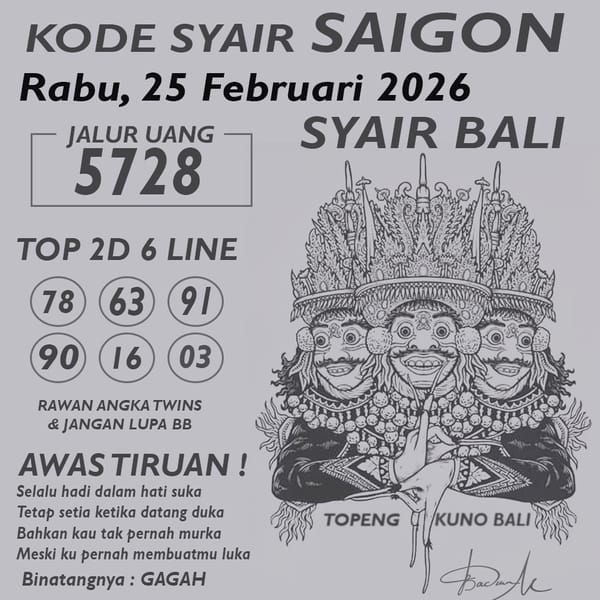 KODE SYAIR SAIGON
Rabu, 25 Februari 2026
SYAIR BALI
JALUR UANG
5728
TOP 2D 6 LINE
78 63 91
90 16 03
RAWAN ANGKA TWINS
& JANGAN LUPA BB
AWAS TIRUAN !
Selalu hadi dalam hati suka
Tetap setia ketika datang duka
Bahkan kau tak pernah murka
Meski ku pernah membuatmu luka
Binatangnya : GAGAH
TOPENG KUNO BALI